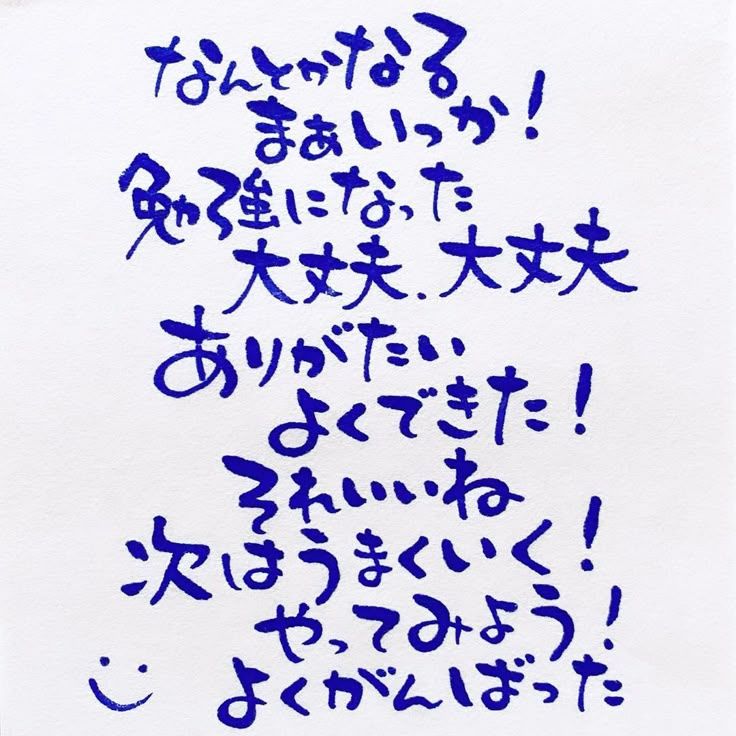 なんとかなる
まぁいっか！
勉強になった
大丈夫、大丈夫
ありがたい
よくできた！
それいいね
次はうまくいく！
やってみよう！
よくがんばった